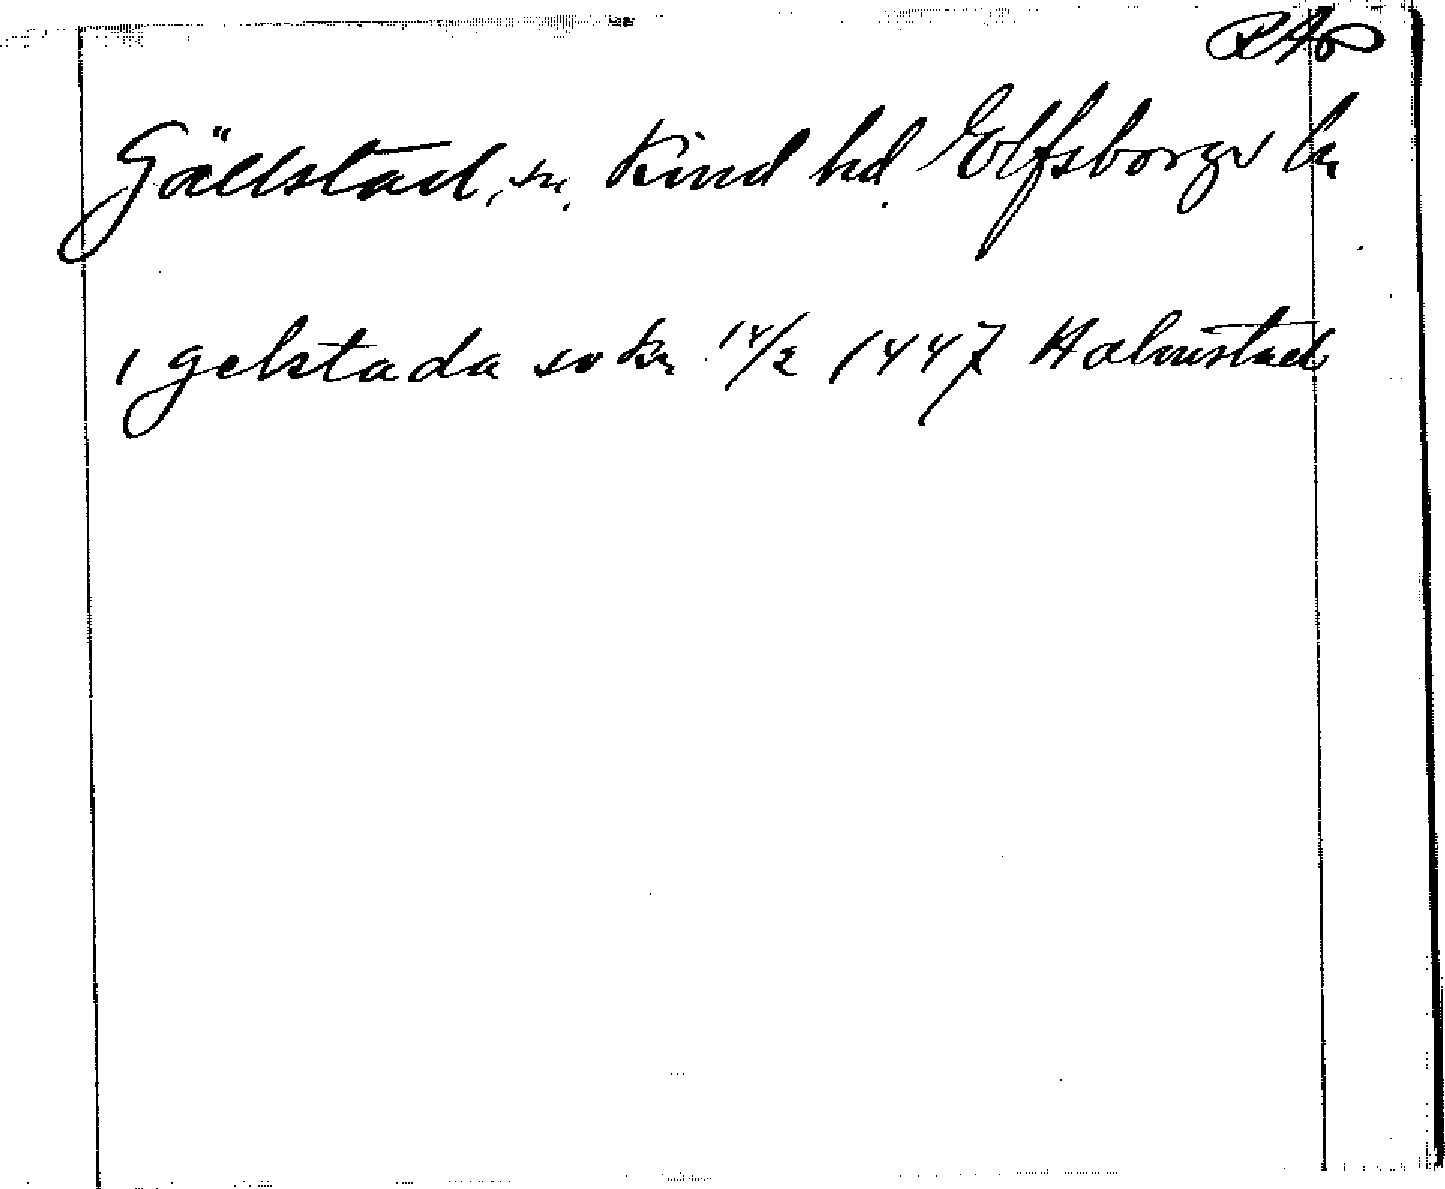 RAp
Gällstad, sn. Kind hd. Elfsborgs ln
i gelstada sokn 14/2 1447 Halmstad